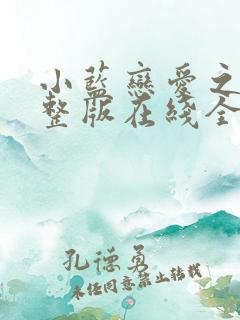 小藍戀愛之
整版在綫全
孔德勇
未经同意禁止转载